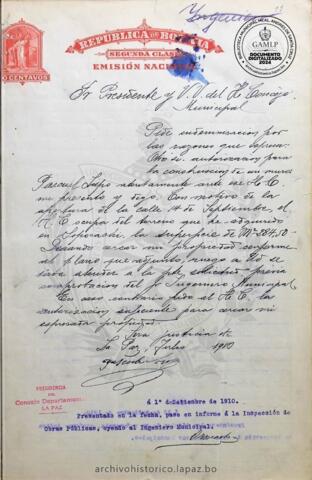 Urgente
REPUBLICA DE BOLIVIA
SEGUNDA CLASE
EMISIÓN NACIONAL
CENTAVOS
GAMLP
DOCUMENTO
DIGITALIZADO
2024
Sr Presidente y V.V. del H. Concejo
Municipal
Pide indemnizacion por
las razones que expresa.
Otro si: autorizacion para
la construccion de un muro
ante ese H. C.
me presento y digo: Con motivo de la
apertura de la calle de Septiembre el
H. C. ocupó del terreno que he adquirido
en Sopocachi la superficie de M² 284,50
Deseando cercar mi propiedad conforme
al plano que adjunto, ruego a Ud se
sirva atender a la solicitud previa
comprobacion del Sr Ingeniero Municipal
En caso contrario pido al H. C. la
autorizacion suficiente para cercar mi
expresada propiedad.
Sera justicia etc
La Paz, Julio 1910
PRESIDENCIA
DEL
Concejo Departamental
LA PAZ
á 1º de Setiembre de 1910.
Presentado en la fecha, pase en informe á la Inspección de
Obras Públicas, oyendo al Ingeniero Municipal.
archivohistorico.lapaz.bo